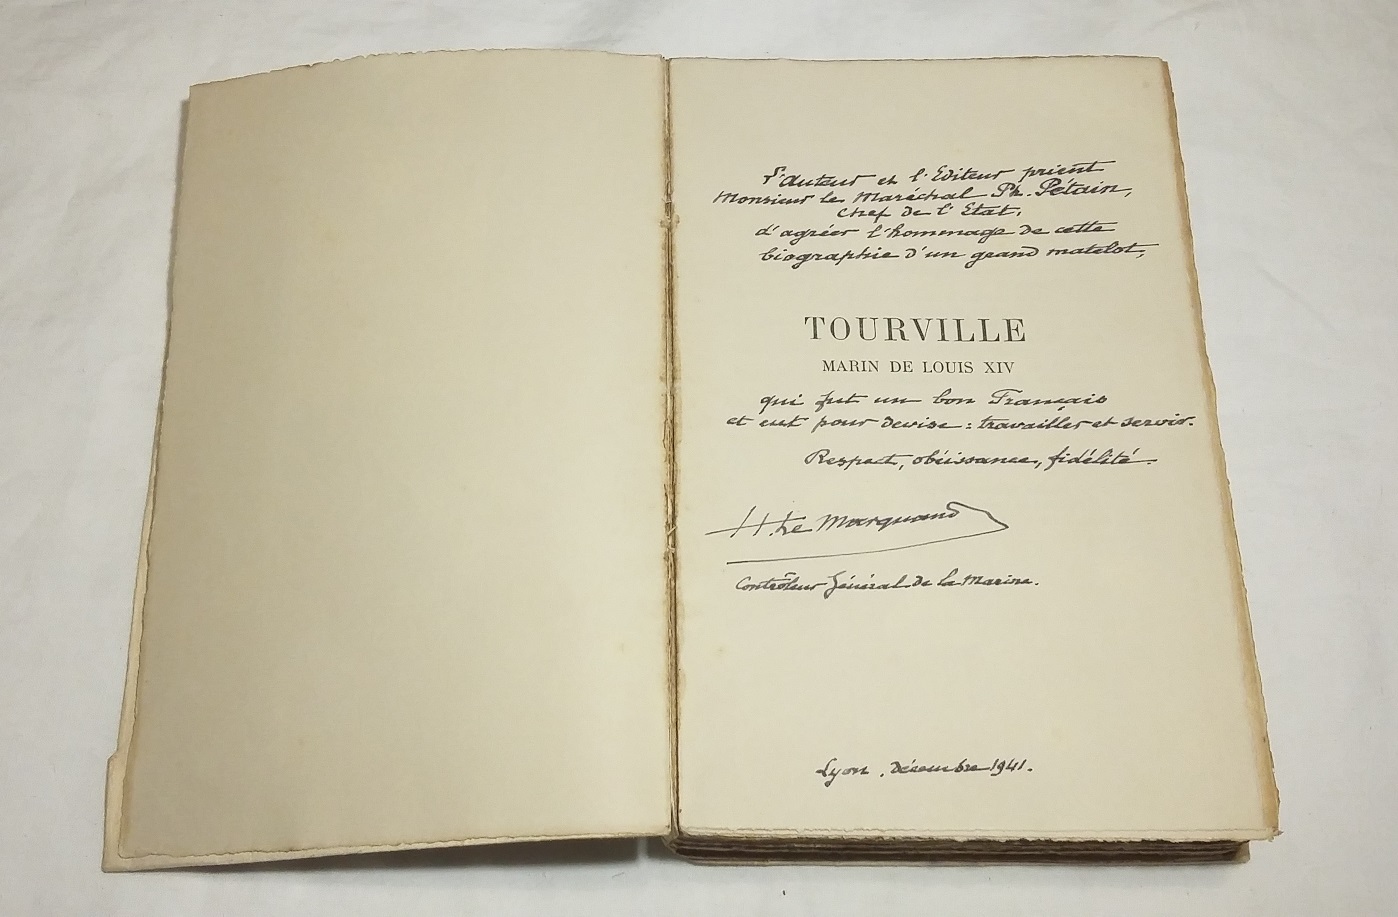 L'Auteur et l'Editeur prient
Monsieur le Maréchal Ph. Pétain,
Chef de l'Etat,
d'agréer l'hommage de cette
biographie d'un grand matelot,
TOURVILLE
MARIN DE LOUIS XIV
qui fut un bon Français
et eut pour devise : travailler et servir.
Respect, obéissance, fidélité.
H. Le Marquand
Contrôleur Général de la Marine.
Lyon, décembre 1941.